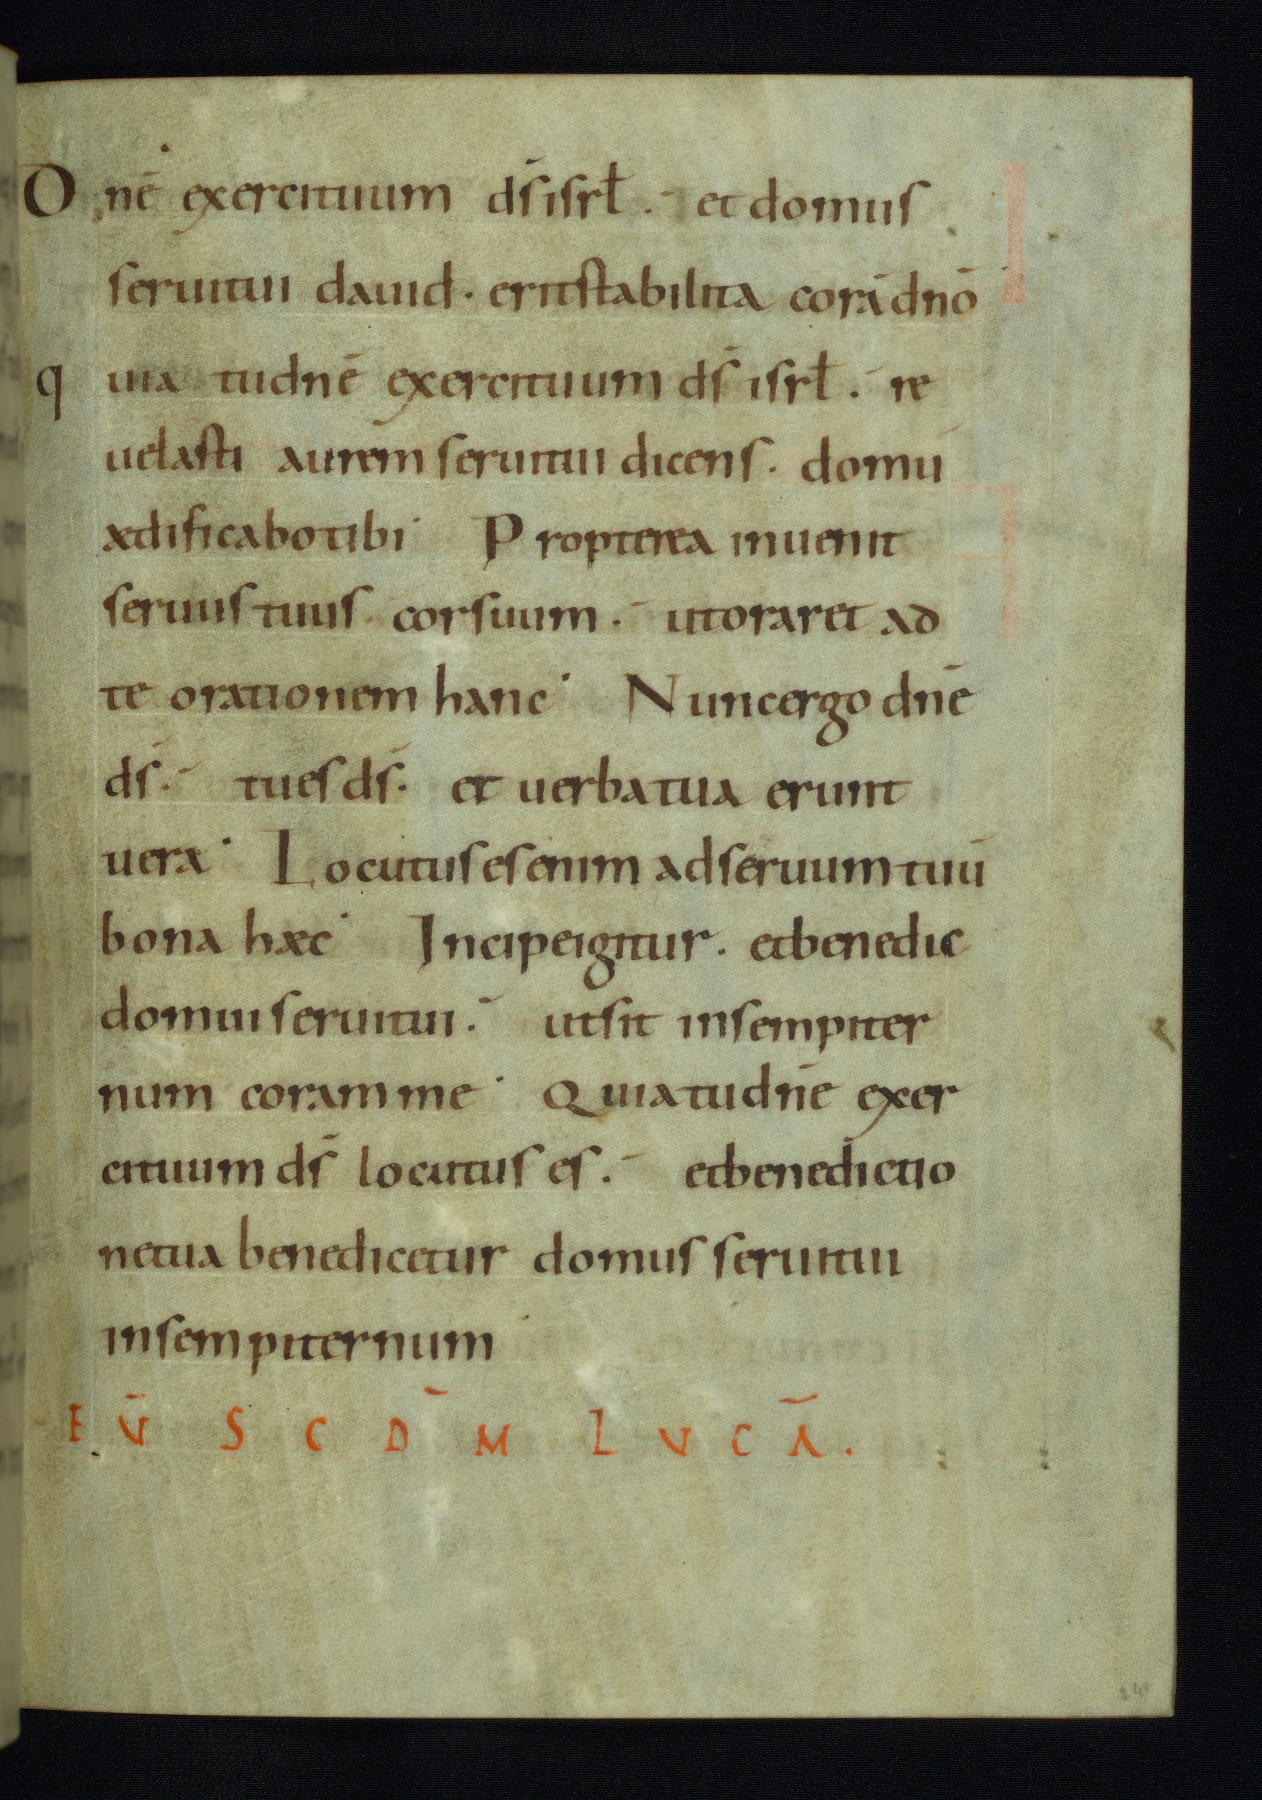 D nē exercituum dš isrł. et domus
serui tui dauid. erit stabilita corā dnō
q uia tu dnē exercituum dš isrł. re
uelasti aurem serui tui dicens. domū
ædificabo tibi· Propterea inuenit
seruus tuus cor suum. ut oraret ad
te orationem hanc· Nunc ergo dnē
dš. tu es dš. et uerba tua erunt
uera· Locutus es enim ad seruum tuū
bona hæc· Incipe igitur. et benedic
domui serui tui. ut sit in sempiter
num coram me· Quia tu dnē exer
cituum dš locutus es. et benedictio
ne tua benedicetur domus serui tui
in sempiternum
EV̄ SCDM̄ LVCĀ.